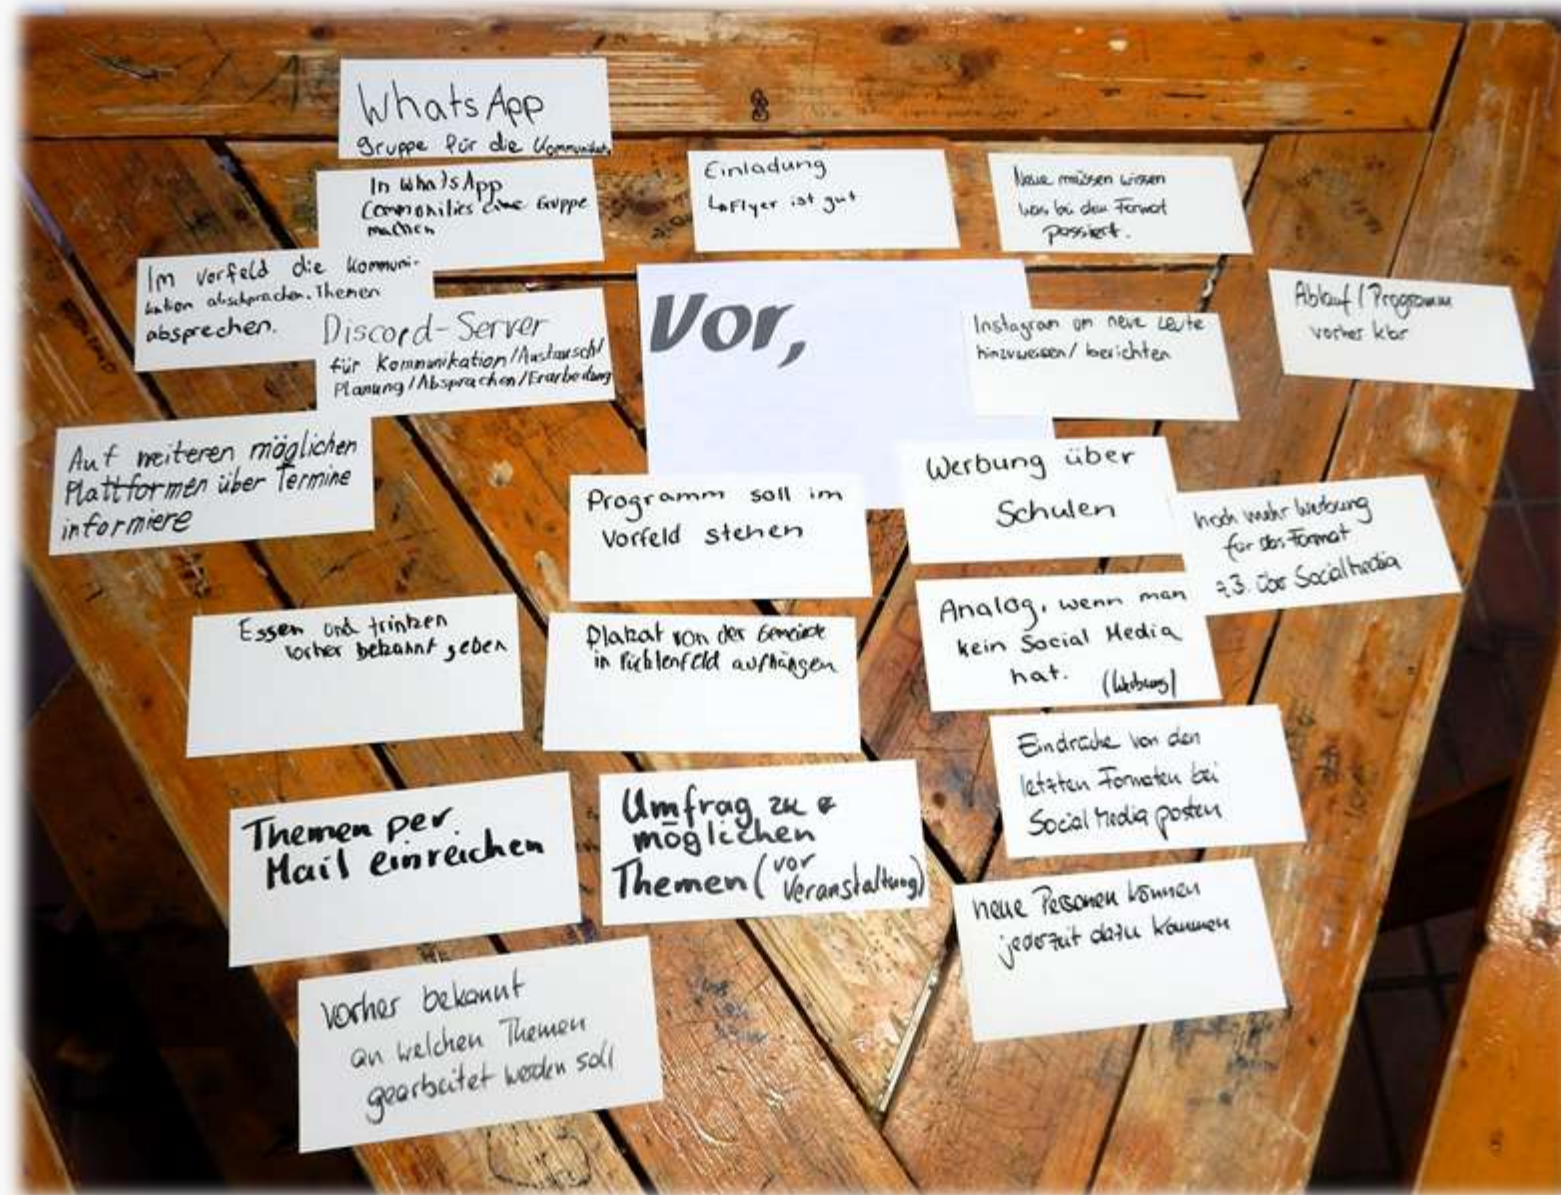 WhatsApp
Gruppe für die Kommunikat.
In WhatsApp
Communities eine Gruppe
machen
Einladung
↳ Flyer ist gut
Neue müssen wissen
was bei dem Format
passiert.
Im Vorfeld die Kommuni-
kation absprachen. Themen
absprechen.
Discord-Server
für Kommunikation/Austausch/
Planung/Absprachen/Erarbeitung
Vor,
Instagram um neue Leute
hinzuweisen/ berichten
Ablauf / Programm
vorher klar
Auf weiteren möglichen
Plattformen über Termine
informiere
Programm soll im
Vorfeld stehen
Werbung über
Schulen
noch mehr Werbung
für das Format
z.B. über Social Media
Essen und trinken
vorher bekannt geben
Plakat von der Gemeinde
in aufhängen
Analog, wenn man
kein Social Media
hat. (Werbung)
Eindrücke von den
letzten Formaten bei
Social Media posten
Themen per
Mail einreichen
Umfrag zu
möglichen
Themen (vor
Veranstaltung)
neue Personen können
jederzeit dazu kommen
Vorher bekannt
an welchen Themen
gearbeitet werden soll